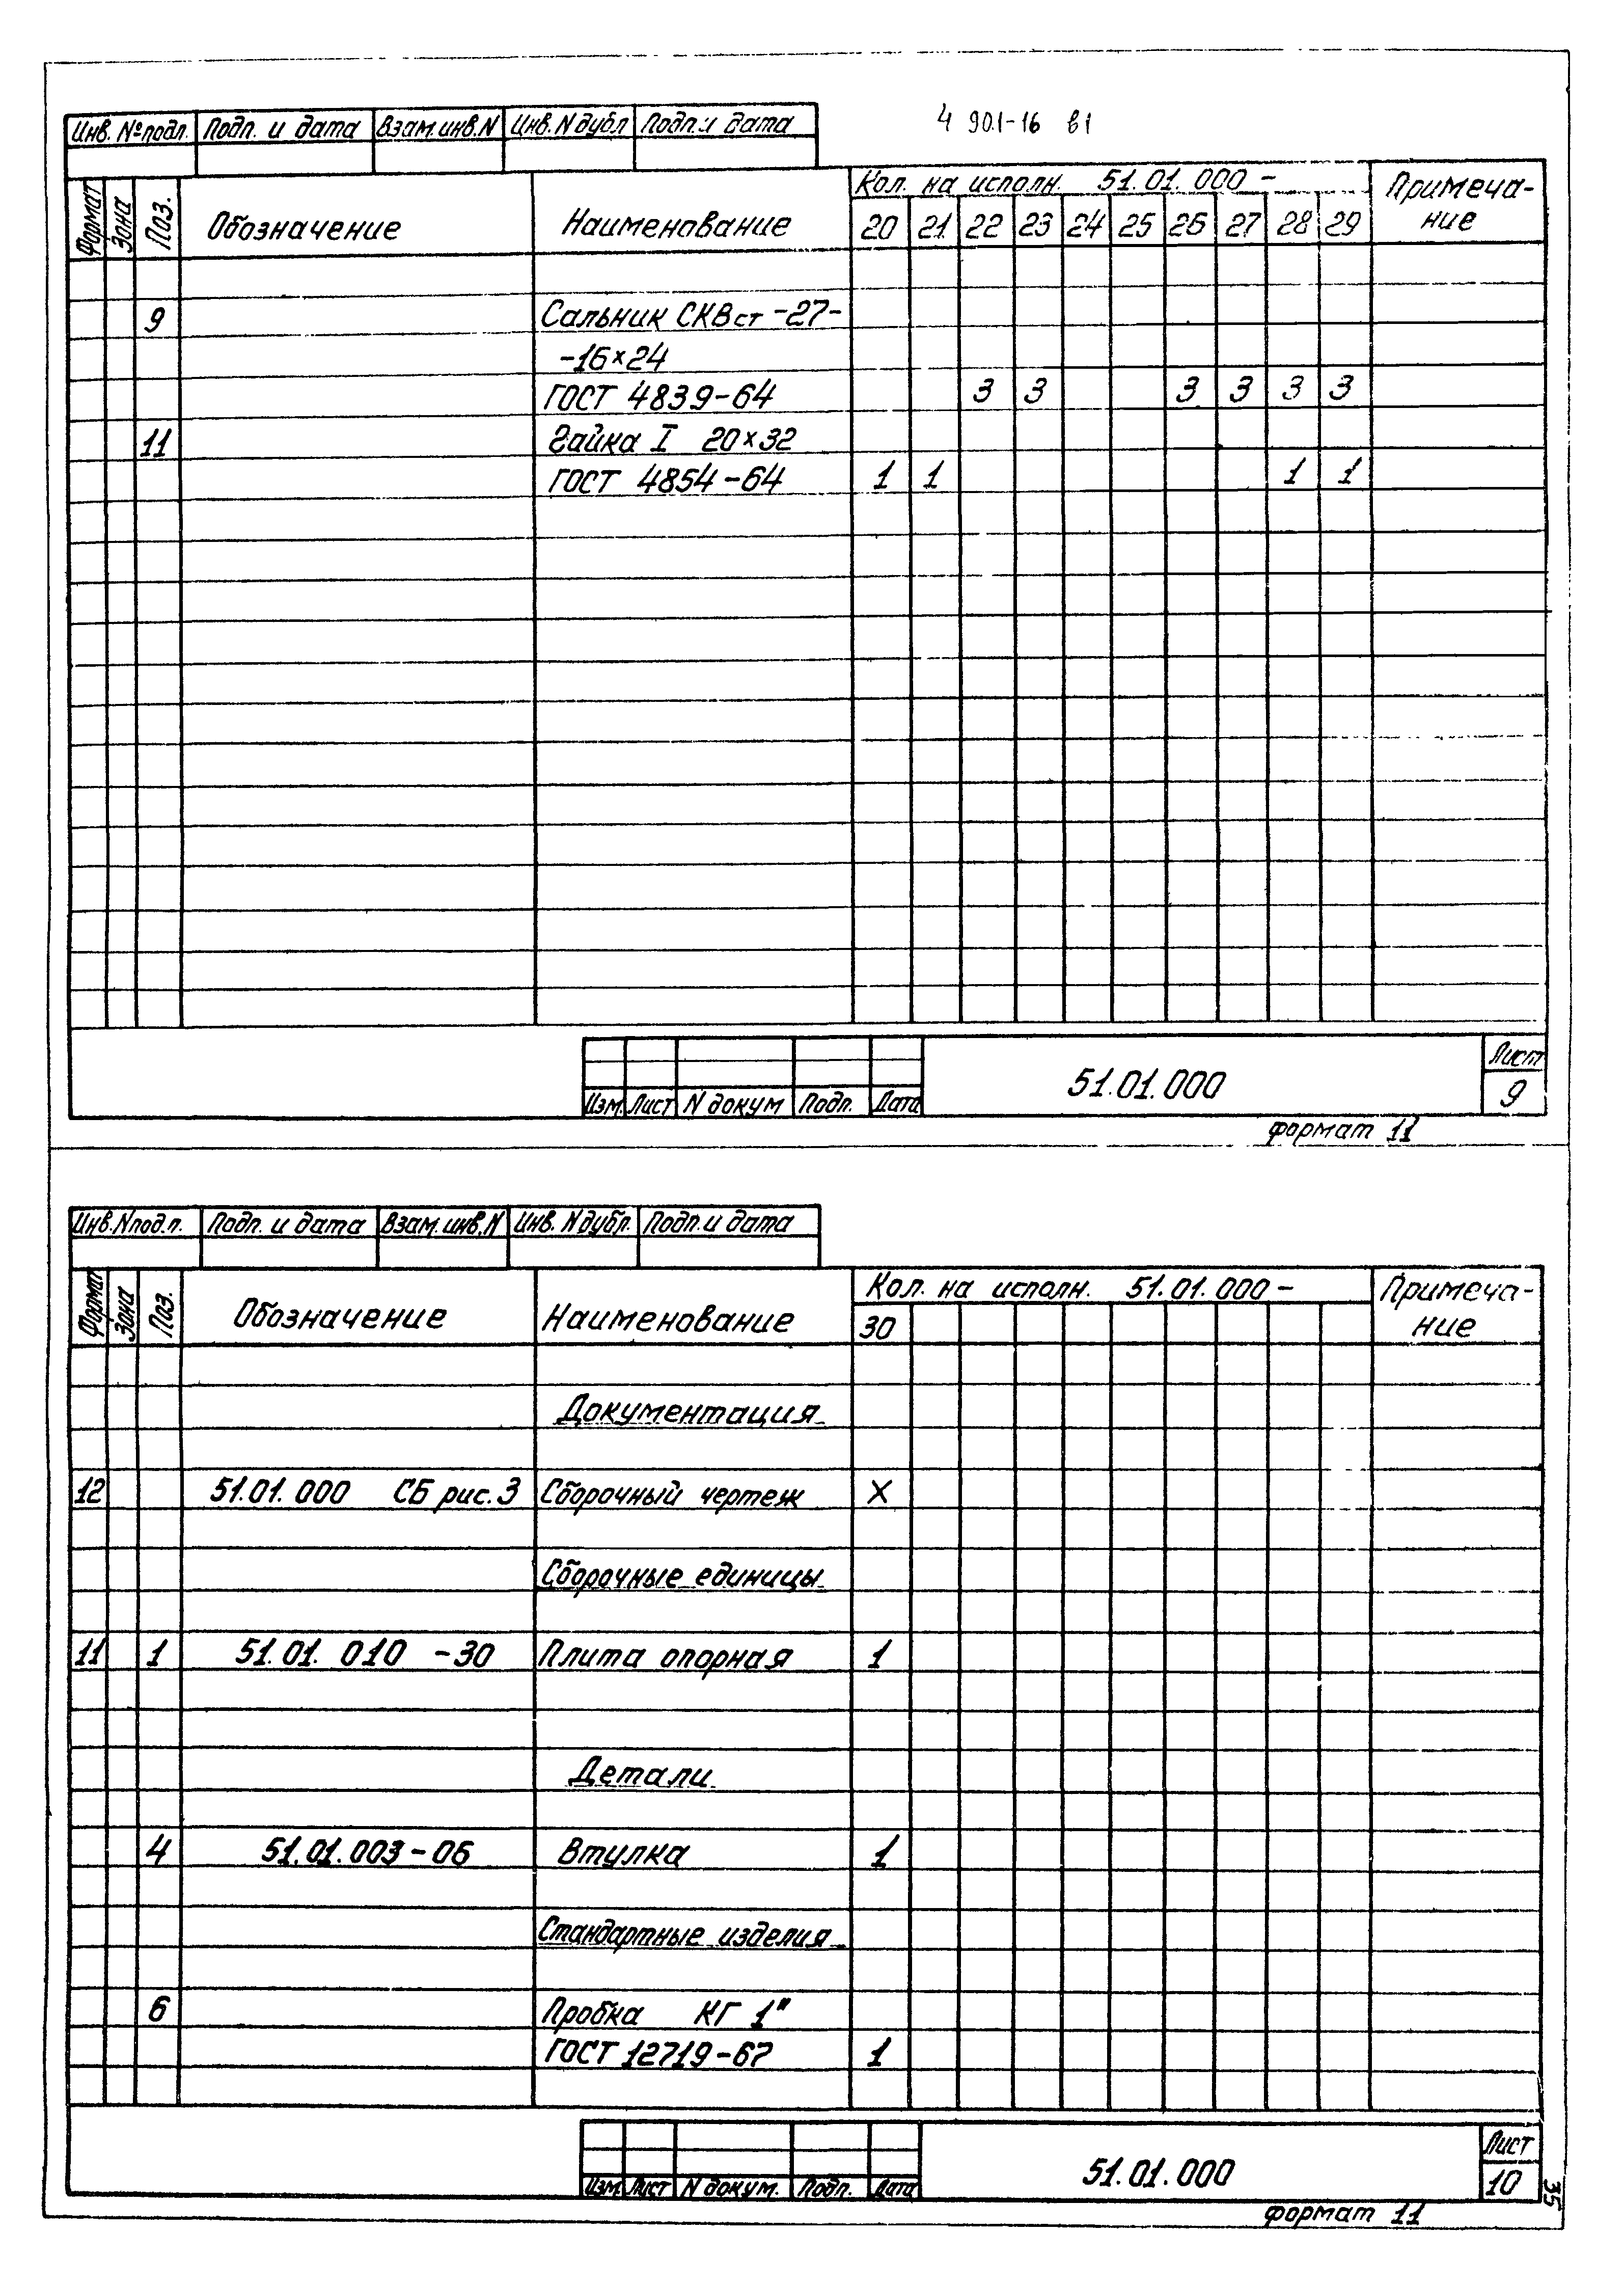 4 901-16 в1
Инв. №подл. Подп. и дата Взам.инв.N Инв.N дубл Подп.и дата
Формат Зона Поз. Обозначение Наименование Кол. на исполн. 51.01.000 - Примеча-
20 21 22 23 24 25 26 27 28 29 ние
9 Сальник СКВст -27-
-16×24
ГОСТ 4839-64 3 3 3 3 3 3
11 Гайка I 20×32
ГОСТ 4854-64 1 1 1 1
51.01.000 Лист
Изм. Лист N докум Подп. Дата 9
формат 11
Инв.Nпод.л. Подп. и дата Взам.инв.N Инв.Nдубл. Подп.и дата
Формат Зона Поз. Обозначение Наименование Кол. на исполн. 51.01.000 - Примеча-
30 ние
Документация
12 51.01.000 СБ рис.3 Сборочный чертеж X
Сборочные единицы
11 1 51.01.010 -30 Плита опорная 1
Детали
4 51.01.003-06 Втулка 1
Стандартные изделия
6 Пробка КГ 1"
ГОСТ 12719-67 1
51.01.000 Лист
Изм. Лист N докум. Подп. Дата 10
формат 11
35